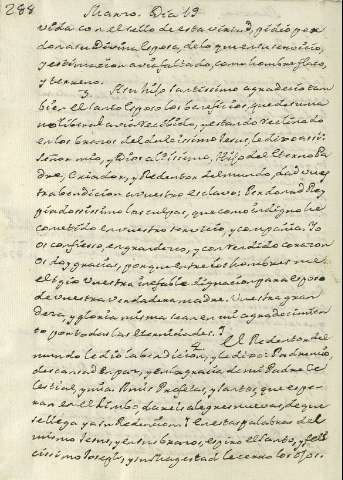 288
Marzo. Dia 19
vida con el sello de esta virtud, pidio per
don a su Divina Esposa, de lo que en su servicio,
y estimacion avia faltado, como hombre flaco,
y terreno.
3. A su hijo santissimo agradecio tam
bien el santo Esposo los beneficios, que de su ma
no liberal avia recibido, y estando reclinado
en los brazos del dulcissimo Jesus, le dixo assi:
Señor mio, y Dios altissimo, Hijo del Eterno Pa
dre, Criador, y Redentor del mundo, dad vues
tra bendicion a vuestro esclavo: Perdonad Rey
piadosissimo las culpas, que como indigno he
cometido en vuestro servicio, y compañia. Yo
os confiesso, engrandezco, y con rendido corazon
os doy gracias, porque entre los hombres me
eligió vuestra inefable dignacion para esposo
de vuestra verdadera madre. Vuestra gran
deza, y gloria misma sean en mi agradecimien
to por todas las eternidades.
4. El Redentor del
mundo le dió la bendicion, y le dixo: Padre mio,
descansad en paz, y en la gracia de mi Padre Ce
lestial, y mia. A mis Profetas, y santos, que espe
ran en el limbo, dareis alegres nuevas, de que
se llega ya su Redencion. En estas palabras del
mismo Jesus, y en sus brazos, espiró el santo, y feli
cissimo Joseph, y su Magestad le cerró los ojos.